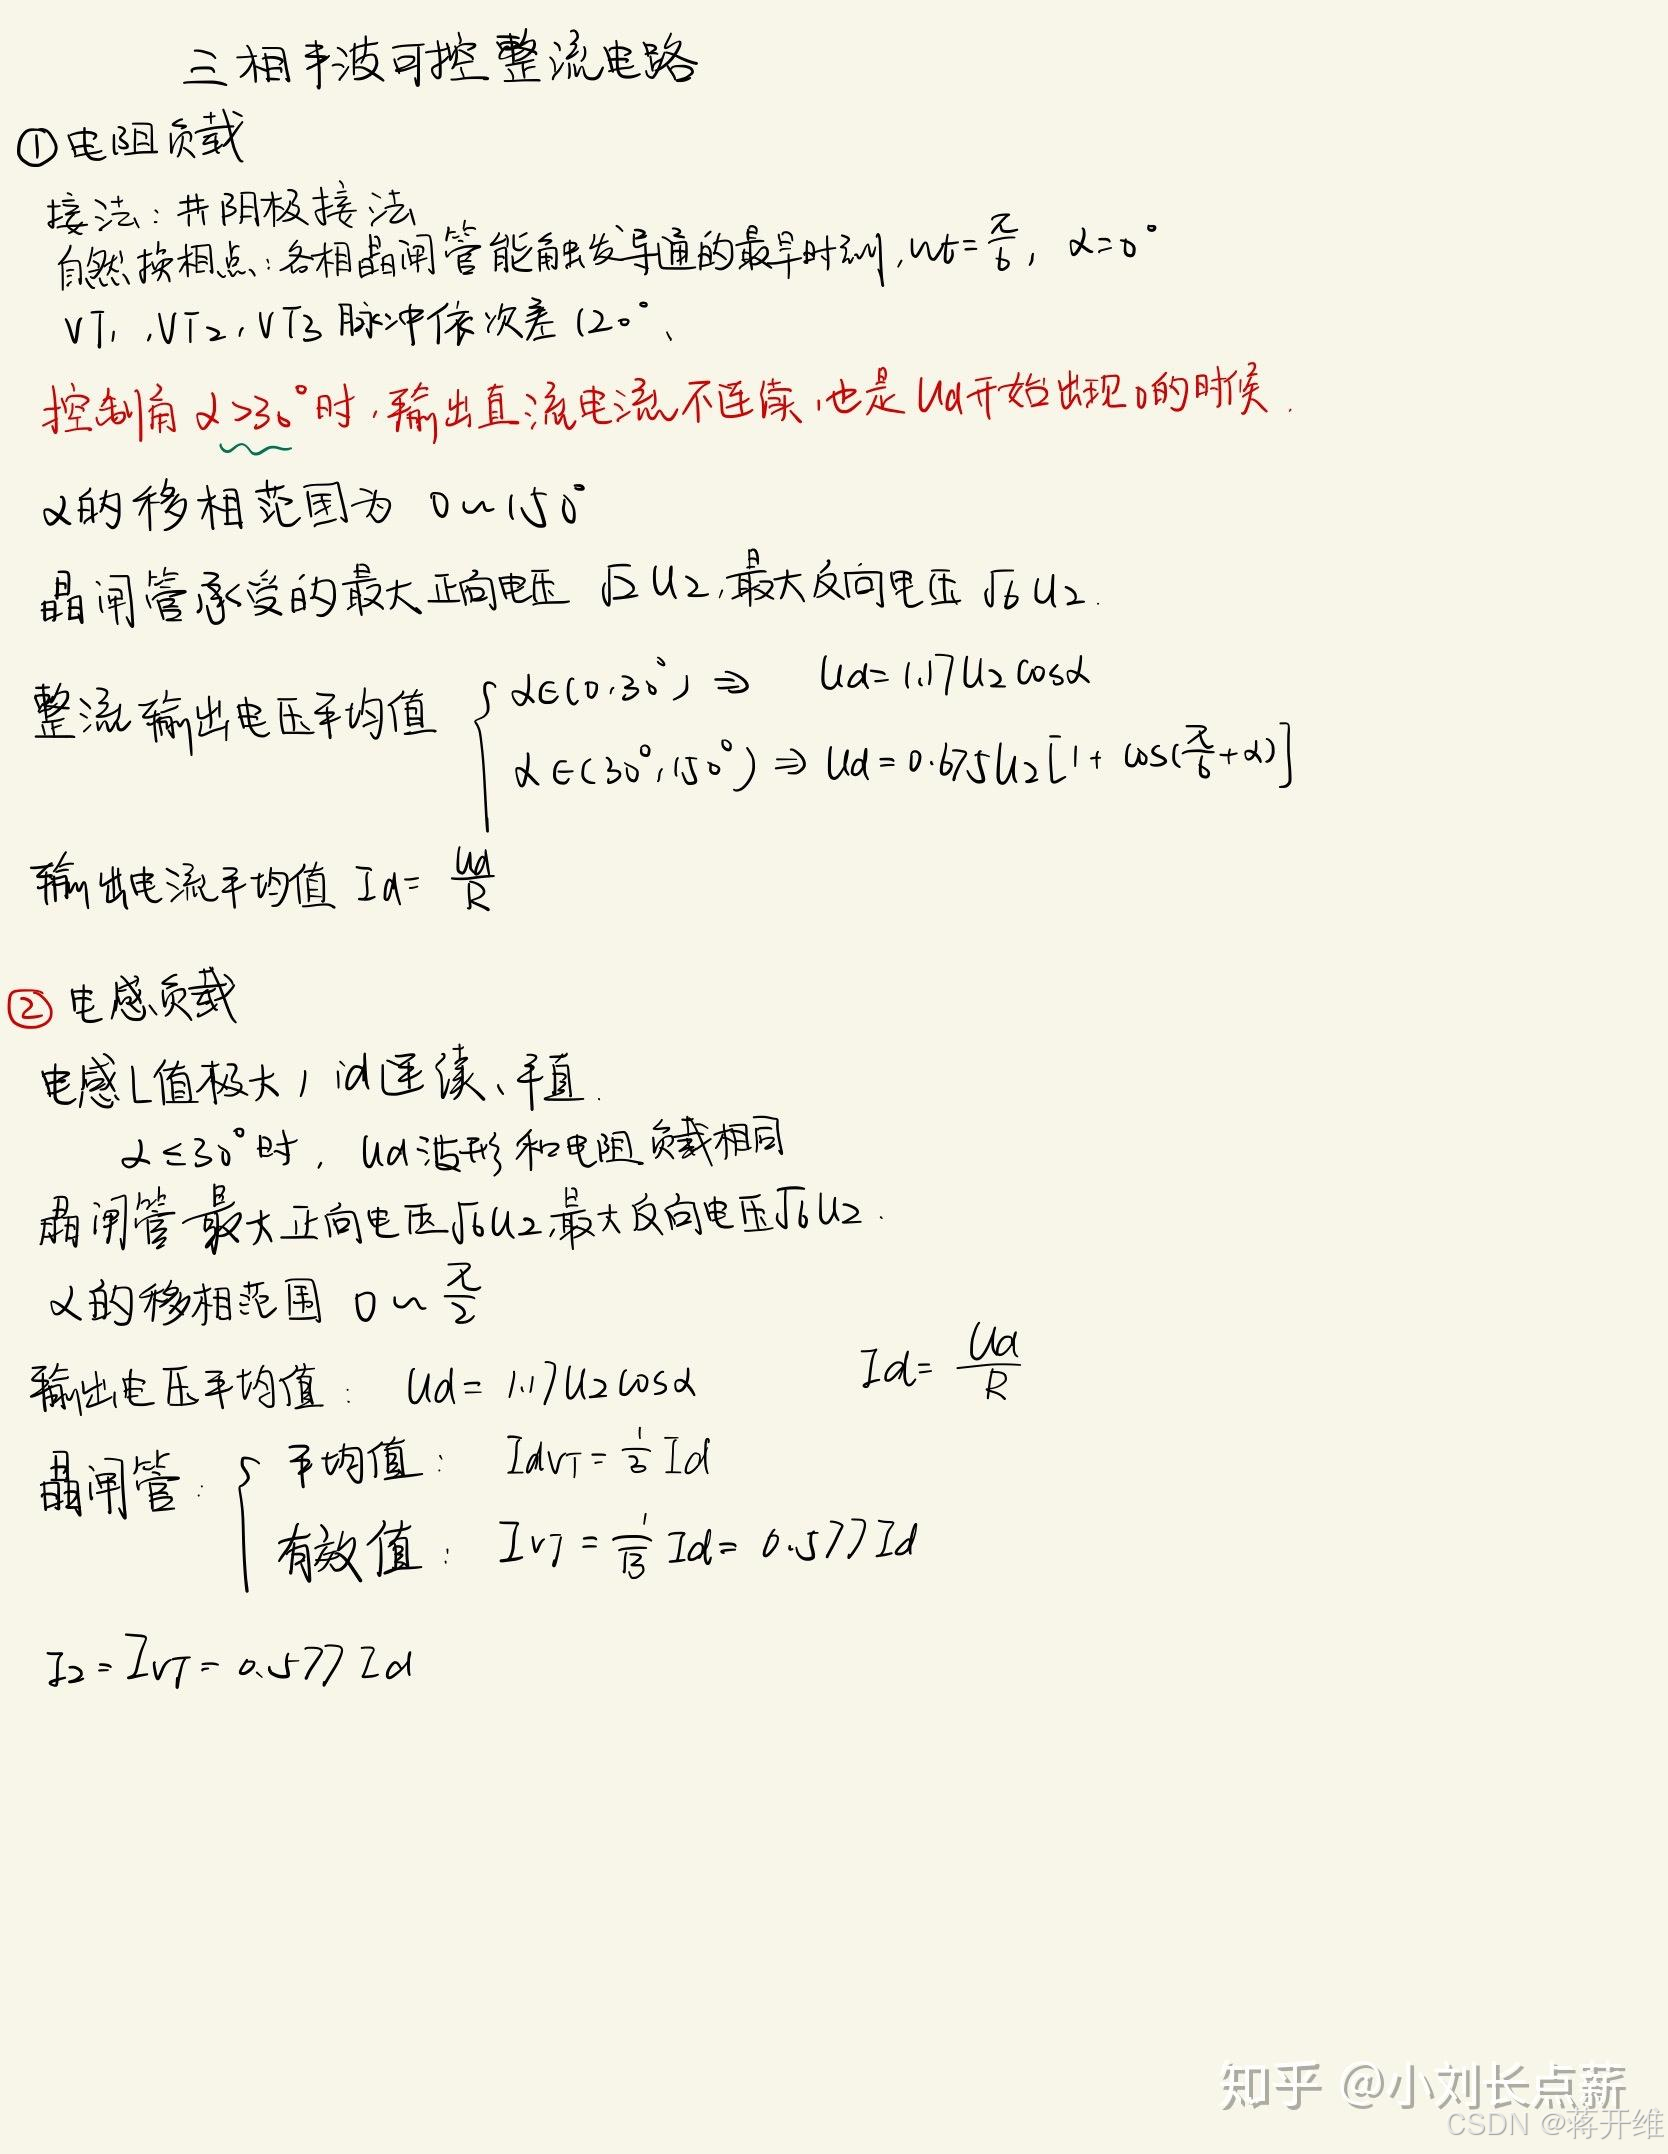 三相半波可控整流电路
①电阻负载
接法：共阴极接法
自然换相点：各相晶闸管能触发导通的最早时刻，wt=π/6，α=0°
VT1，VT2，VT3脉冲依次差120°、
控制角α>30°时，输出直流电流不连续，也是Ud开始出现0的时候.
α的移相范围为 0~150°
晶闸管承受的最大正向电压 √2U2，最大反向电压 √6U2.
整流输出电压平均值 { α∈(0,30°) ⇒ Ud=1.17U2cosα
α∈(30°,150°) ⇒ Ud=0.675U2[1+cos(π/6+α)]
输出电流平均值 Id=Ud/R
②电感负载
电感L值极大，id连续、平直.
α≤30°时，Ud波形和电阻负载相同
晶闸管最大正向电压√6U2，最大反向电压√6U2.
α的移相范围 0~π/2
输出电压平均值：Ud=1.17U2cosα Id=Ud/R
晶闸管：{ 平均值：IdVT=1/3Id
有效值：IVT=1/√3Id=0.577Id
I2=IVT=0.577Id
知乎 @小刘长点薪
CSDN @蒋开维